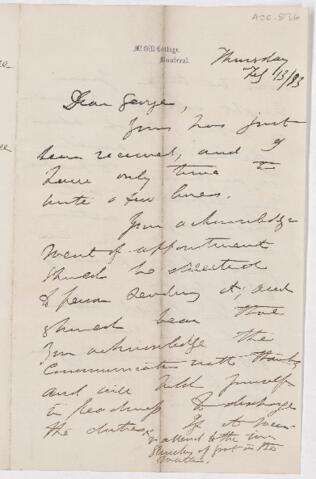 ACC-836
McGill College,
Montreal.
Thursday
13/83
Dear George,
Yours has just
been received, and I
have only time to
write a few lines.
Your acknowledge
ment of appointment
should be directed
to person sending it, and
should bear that
you acknowledge the
communication with thanks
and will hold yourself
in readiness to discharge
the duties
attend to the
in the